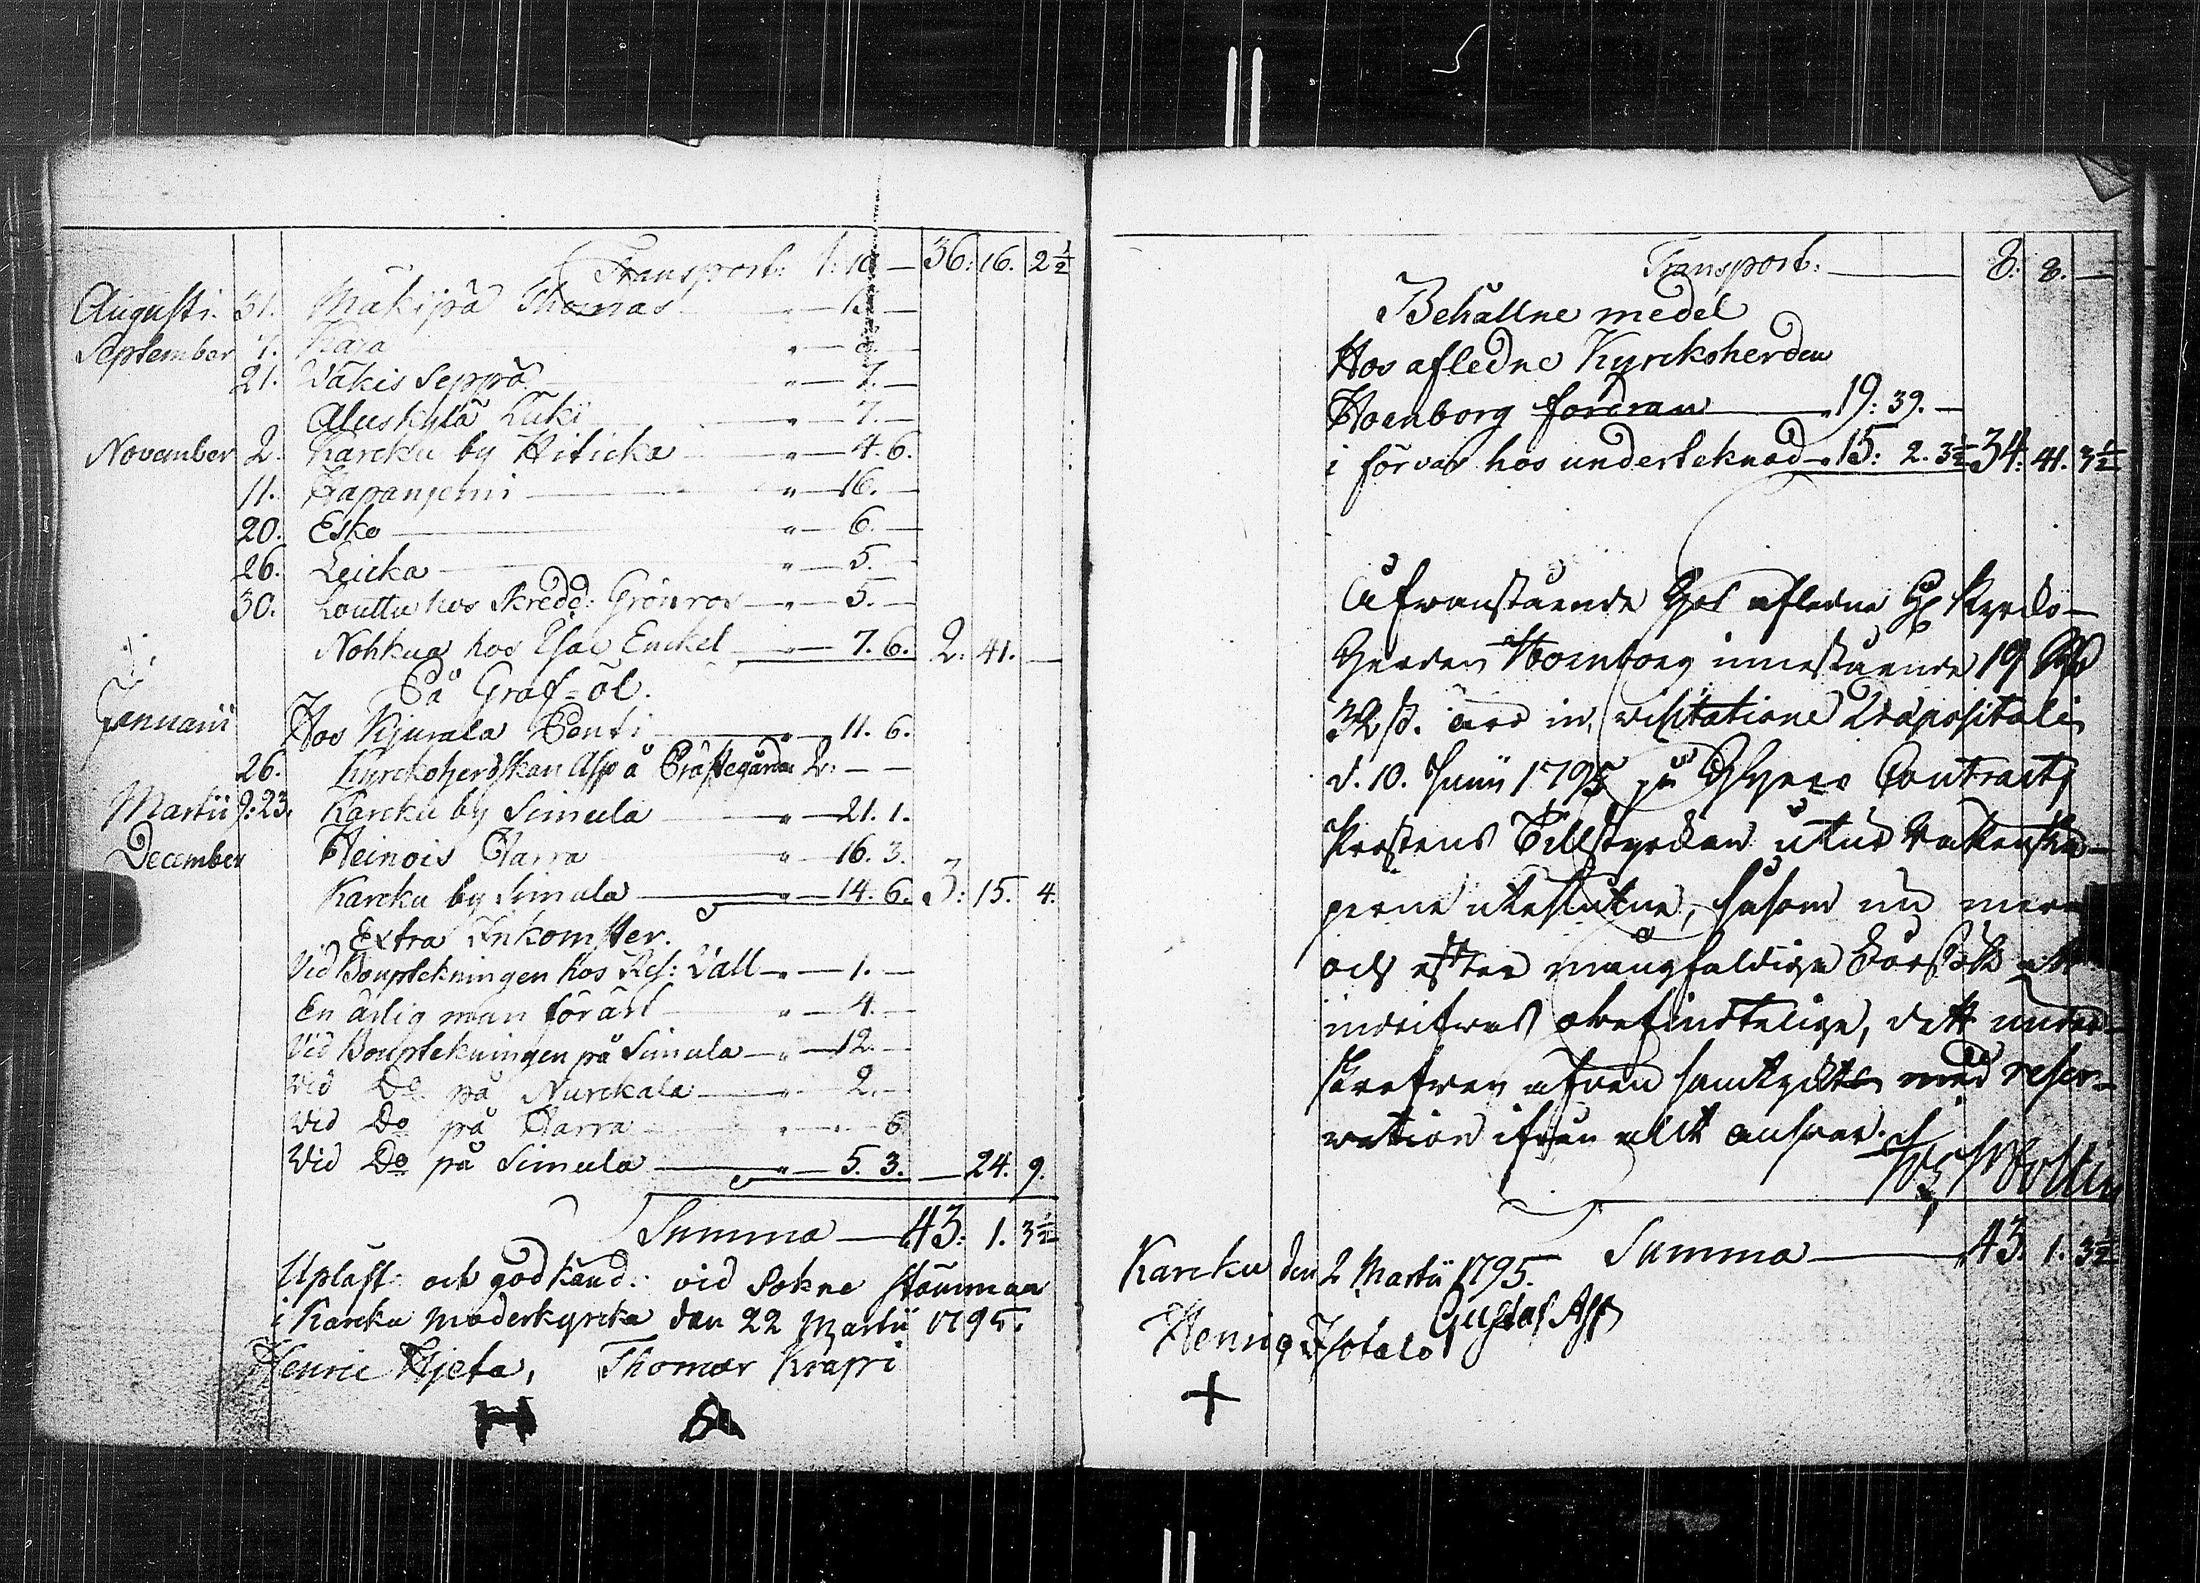 Transport: 1: 10 — 36. 16. 2½
Augusti. 31. Mäkipä Thomas — " — 15. —
September 7. Kara — " —
21. Wäkis Seppä — " — 7. —
Aluskylä Luki — " — 7. —
November 2. Karcku by Hiticka — " — 4. 6.
11. Tapanjemi — " — 16. —
20. Esko — " — 6. —
26. Leicka — " — 5. —
30. Louttu hos Skredd: Grönros — " — 5. —
Nohkua hos Isac Enckel — " — 7. 6. 2. 41. —
På Graf-öl.
Januarii Hos Kjurala Penti — " — 11. 6.
26. Kyrckoherdskan Asp å Prästegården 2. — —
Martii 9. 23. Karcku by Simula — " — 21. 1.
December Heinois Harra — " — 16. 3.
Karcku by Simula — " — 14. 6. 3: 15. 4.
Extra Inkomster.
Vid Boupteckningen hos Wall — " — 1. —
En ärlig man förärt — " — 4. —
Vid Boupteckningen på Simula — " — 12. —
Vid Do på Nurckala — " — 2. —
Vid Do på Harra — " — 6
Vid Do på Simula — " — 5. 3. — 24. 9.
Summa — 43: 1. 3½
Upläst och godkänd: vid Sokne stämman
i Karcku moderkyrcka den 22 Martii 1795.
Henric Hjeta, Thomas Krappi
Transport: — 8: 8. —
Behållne medel
Hos afledne Kyrckoherden
Hoenborg fordran — " 19: 39. —
i förvar hos undertecknad " 15: 2. 3½ 34: 41. 3½
Afvanstående hos afledne H Kyrcko-
Herden Hoenborg innestående 19 Rd
32 ß. äro in visitatione Præpositali
d. 10. Junii 1795 på Contracts
Prostens Tillstyrckan utur Räkenska-
perne uteslutne, såsom nu mera
och efter mångfaldiga Försök att
indrifvas obefintelige, dett under-
skrefven äfven samtyckte med reser-
vation ifrån allt answar.
Summa — 43. 1. 3½
Karcku den 2 Martii 1795.
Gustaf Asp
Henric Isotalo